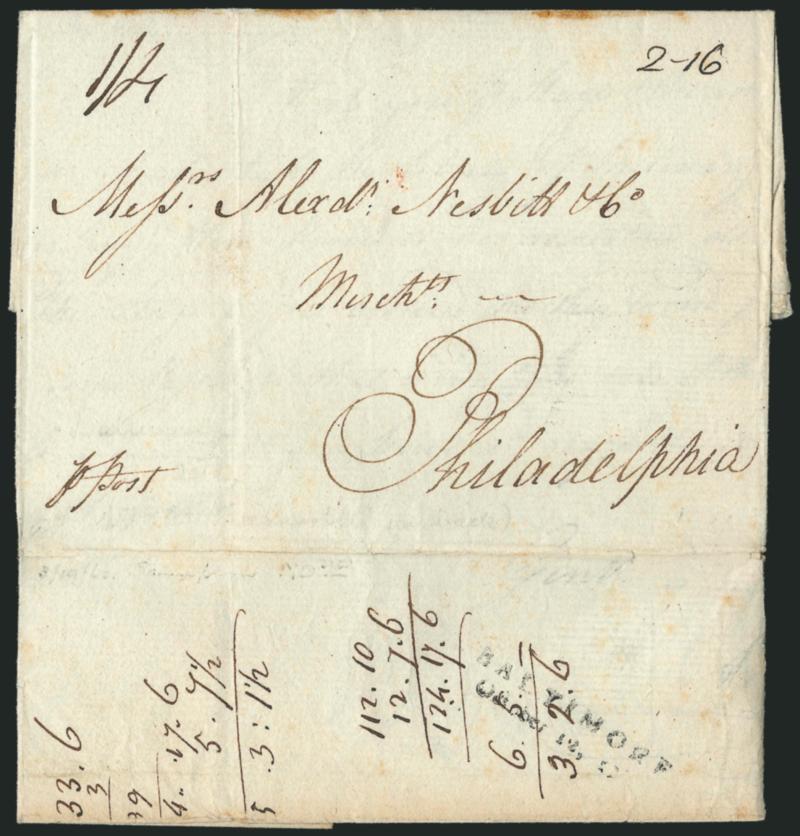 1/4
2-16
Messrs. Alexdr. Nesbitt & Co
Merchts.
Philadelphia
p post
33.6
3
39
4..17.6
5.7½
5.3:1½
112.10
12.7.6
124.17.6
6.5.
3.2.6
BALTIMORE